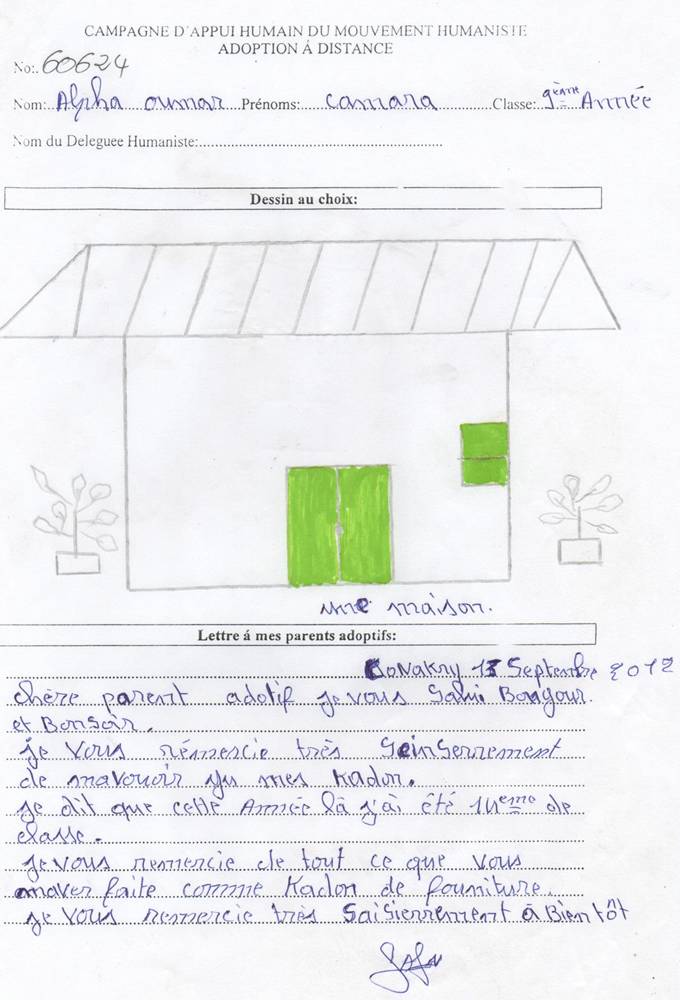 CAMPAGNE D'APPUI HUMAIN DU MOUVEMENT HUMANISTE
ADOPTION Á DISTANCE
No:. 60624
Nom: Alpha oumar Prénoms: camara Classe: 9ème Année
Nom du Deleguee Humaniste:
Dessin au choix:
une maison.
Lettre á mes parents adoptifs:
Conakry 13 Septembre 2012
chère parent adotif je vous Salui Bongour.
et BonSoir.
je vous rémercie très Seinserrement
de mavouoir yu mes Kadon.
je dit que cette Année là j'ai été 11eme de
classe.
je vous remercie de tout ce que vous
maver faite comme Kadon de founiture.
je vous remercie très SaiSierrement à Bien tôt